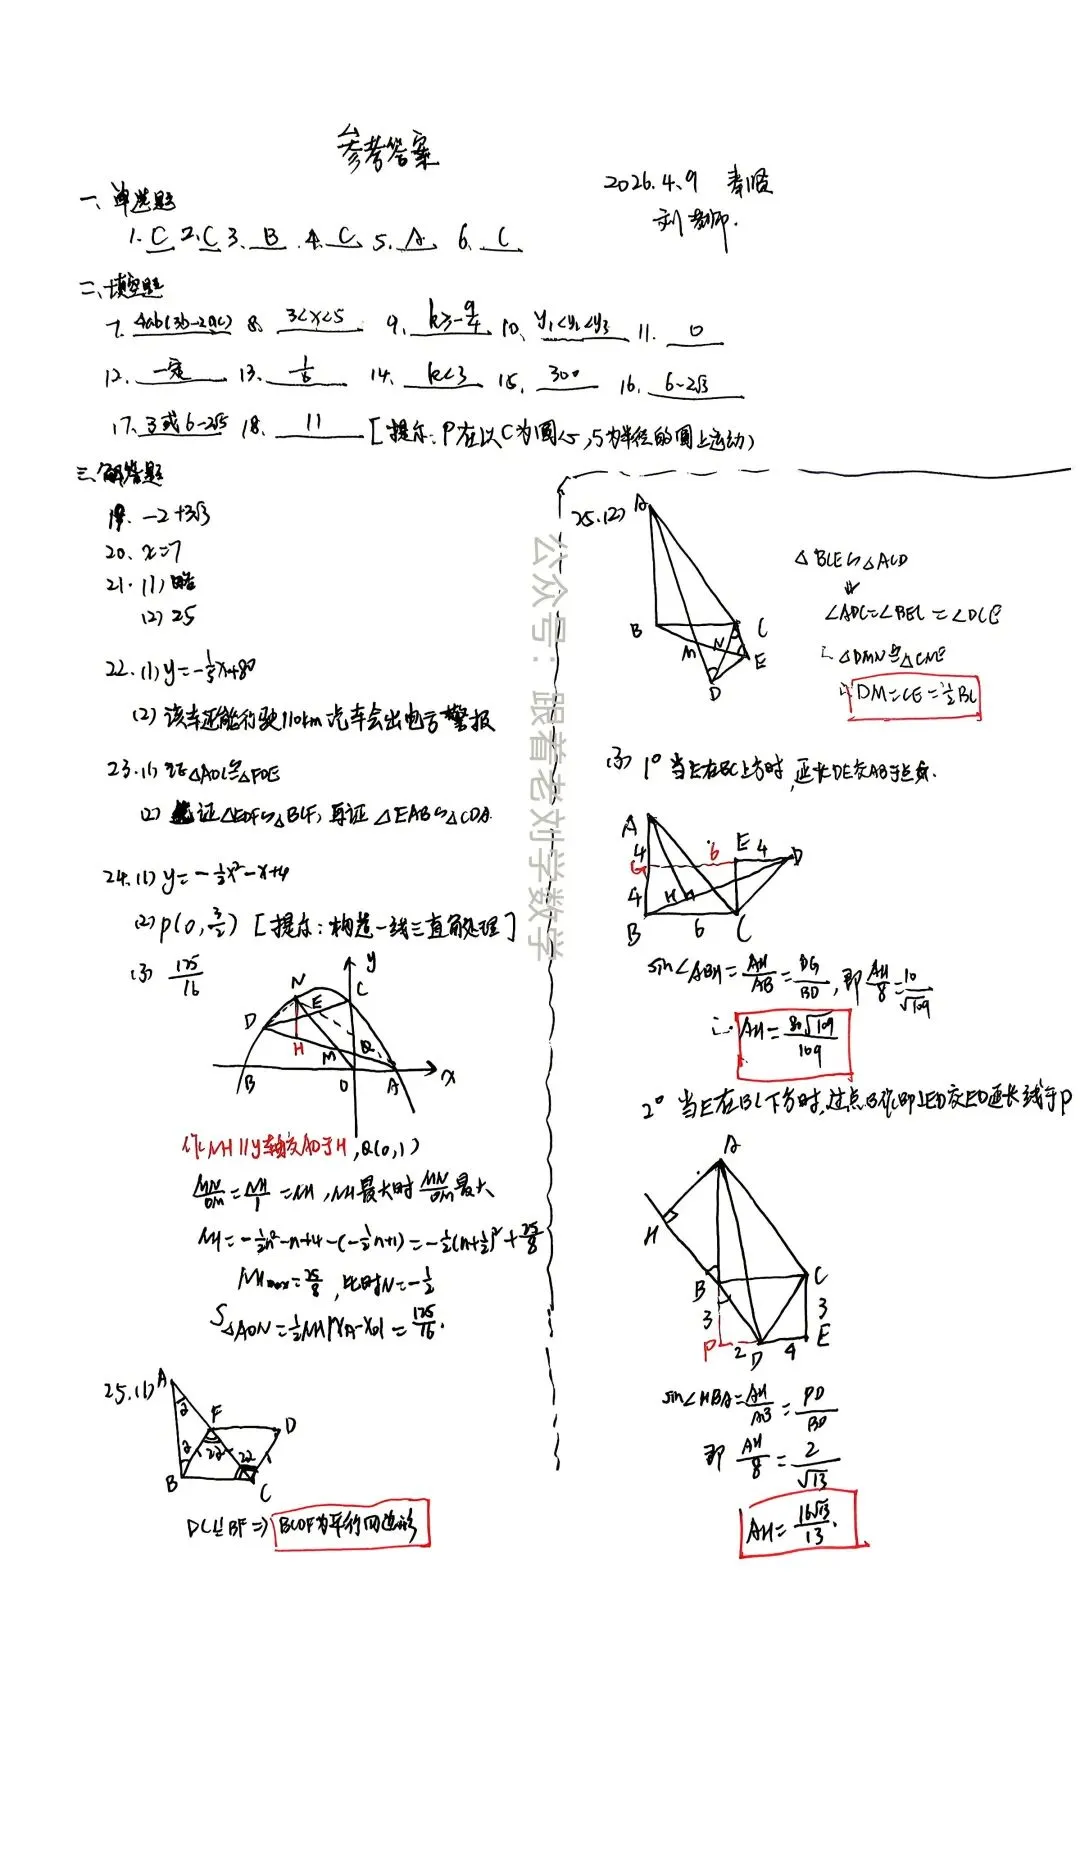 参考答案
2026.4.9 奉贤
刘老师.
一、单选题
1. C 2. C 3. B 4. C 5. A 6. C
二、填空题
7. 4ab(3b-2ac) 8. 3<x<5 9. k≥-9/4 10. y₁<y₂<y₃ 11. 0
12. 一定 13. 1/6 14. k<3 15. 300 16. 6-2√3
17. 3或6-2√5 18. 11 [提示:P在以C为圆心,5为半径的圆上运动)
三、解答题
19. -2+3√3
20. x=7
21. (1) 略
(2) 25
22. (1) y=-1/5x+80
(2) 该车还能行驶110km汽车会出电子警报
23. (1) 证△ADC≌△FDE
(2) 证△EDF∽△BCF, 再证△EAB∽△CDA
24. (1) y=-1/2x²-x+4
(2) P(0,3/2) [提示:构造一线三直角处理]
(3) 125/16
y
N
E
C
D
H
M
Q
B
O
A
x
作NH∥y轴交AD于H, Q(0,1)
MN/OM=NH/1=NH, NH最大时MN/OM最大
NH=-1/2n²-n+4-(-1/2n+1)=-1/2(n+1/2)²+25/8
NHmax=25/8, 此时N=-1/2
S△AON=1/2NH|XA-XD|=125/16.
25. (1)
A
2
F
D
2
22
22
B
C
DC∥BF⇒ BCDF为平行四边形
25. (2)
A
B
C
M
N
E
D
△BCE∽△ACD
⇓
∠ADC=∠BEC=∠DCE
∴△DMN≌△CNE
∴ DM=CE=1/2BC
(3) 1° 当E在BC上方时, 延长DE交AB于点G.
A
4
G
6
E
4
D
4
H
B
6
C
sin∠ABH=AH/AB=DG/BD, 即AH/8=10/√109
∴ AH=80√109/109
2° 当E在BC下方时, 过点B作BP⊥ED交ED延长线于P
A
H
B
C
3
3
P
2
D
4
E
sin∠HBA=AH/AB=PD/BD
即 AH/8=2/√13
AH=16√13/13.
公众号:跟着老刘学数学